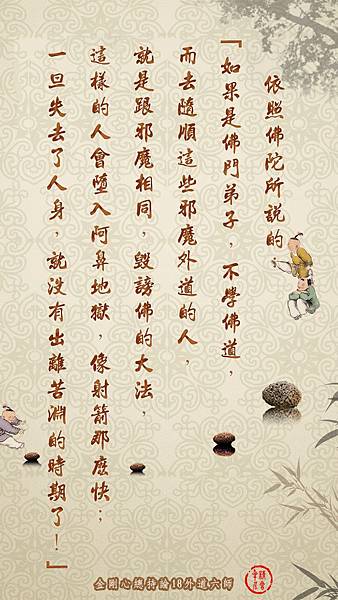 依照佛陀所說的
『如果是佛門弟子，不學佛道，
而去隨順這些邪魔外道的人，
就是跟邪魔相同，毀謗佛的大法，
這樣的人會墮入阿鼻地獄，像射箭那麼快；
一旦失去了人身，就沒有出離苦淵的時期了！』
金剛心總持論18外道六師